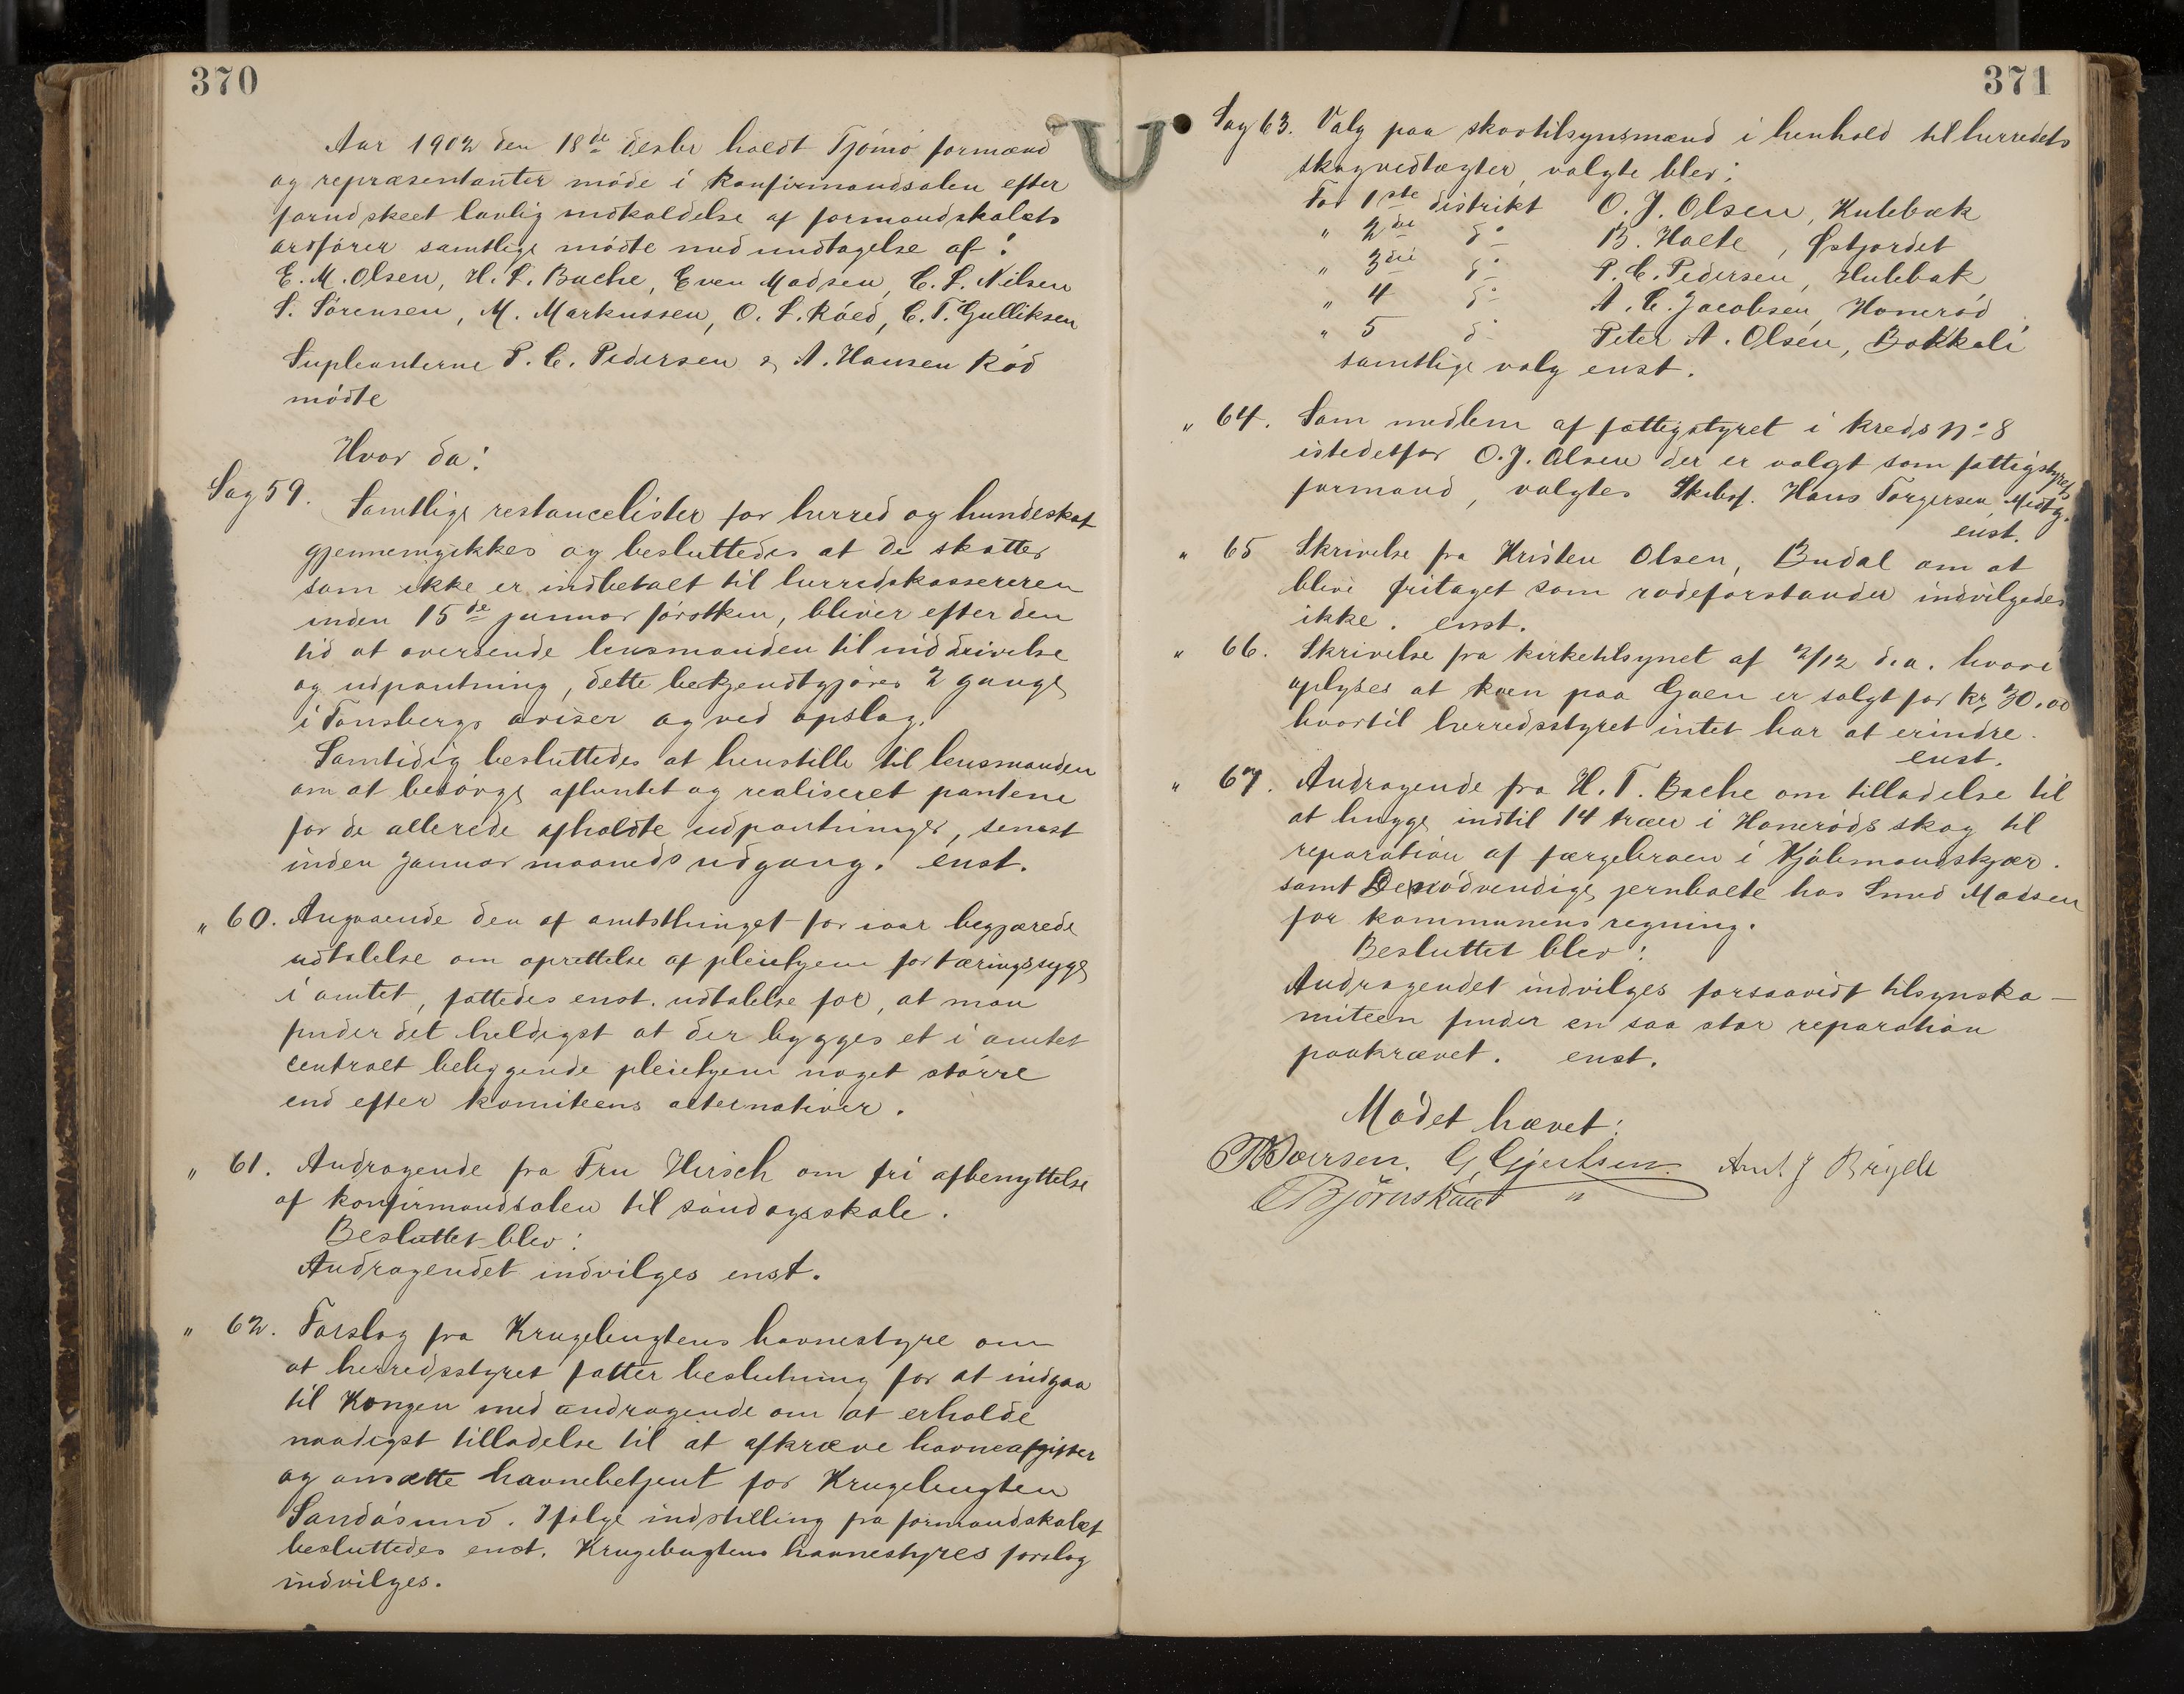 370
Aar 1902 den 18de desbr holdt Tjömö formænd
og repræsentanter möde i konfirmandsalen efter
forud skeet lovlig indkaldelse af formandskabets
ordförer samtlige mödte med undtagelse af:
E. M. Olsen, H. L. Bache, Even Madsen, C. L. Nilsen
S. Sörensen, M. Markussen, O. L. Röed, C. T. Gulliksen
Supleanterne P. C. Pedersen & A. Hansen Röd
mödte
Hvor da:
Sag 59. Samtlige restancelister for herred og hundeskat
gjennemgikkes og besluttedes at de skatter
som ikke er indbetalt til herredskassereren
inden 15de januar förstken, bliver efter den
tid at oversende lensmanden til inddrivelse
og udpantning, dette bekjendtgjöres 2 gange
i Tönsbergs aviser og ved opslag.
Samtidig besluttedes at henstille til lensmanden
om at besörge afhentet og realiseret pantene
for de allerede afholdte udpantninger, senest
inden januar maaneds udgang. enst.
" 60. Angaaende den af amtsthinget for iaar begjærede
udtalelse om oprettelse af pleiehjem for tæringssyge
i amtet, fattedes enst. udtalelse for, at man
finder det heldigst at der bygges et i amtet
centralt beliggende pleiehjem noget större
end efter komiteens alternativer.
" 61. Andragende fra Fru Hirsch om fri afbenyttelse
af konfirmandsalen til söndagsskole.
Besluttet blev:
Andragendet indvilges enst.
" 62. Forslag fra Krugebugtens havnestyre om
at herredsstyret fatter beslutning for at indgaa
til Kongen med andragende om at erholde
naadigst tilladelse til at afkræve havneafgifter
og ansætte havnebetjent for Krugebugten
Sandösund. Ifölge indstilling fra formandskabet
besluttedes enst. Krugebugtens havnestyres forslag
indvilges.
371
Sag 63. Valg paa skovtilsynsmænd i henhold til herredets
skogvedtægter, valgte blev:
For 1ste distrikt O. J. Olsen, Hulebæk
" 2de do B. Holte, Östjordet
" 3die do P. C. Pedersen, Hulebak
" 4 do A. C. Jacobsen, Honeröd
" 5 do Peter A. Olsen, Bokkali
samtlige valg enst.
" 64. Som medlem af fattigstyret i kreds No 8
istedetfor O. J. Olsen der er valgt som fattigstyrets
formand, valgtes Skibsf. Hans Torgersen Medtg.
enst.
" 65 Skrivelse fra Kristen Olsen, Budal om at
blive fritaget som rodeforstander indvilgedes
ikke. enst.
" 66. Skrivelse fra kirketilsynet af 2/12 d.a. hvori
oplyses at koen paa Goen er solgt for kr 30.00
hvortil herredsstyret intet har at erindre.
enst.
" 67. Andragende fra H. T. Bache om tilladelse til
at hugge indtil 14 træer i Honeröds skog til
reparation af færgebroen i Kjöbmandskjær.
samt De nödvendige jernbolte hos Smed Madsen
for kommunens regning.
Besluttet blev:
Andragendet indvilges forsaavidt tilsynsko-
miteen finder en saa stor reparation
paakrævet. enst.
Mödet hævet:
G. Gjertsen. Ant J Bryde
Björnskau